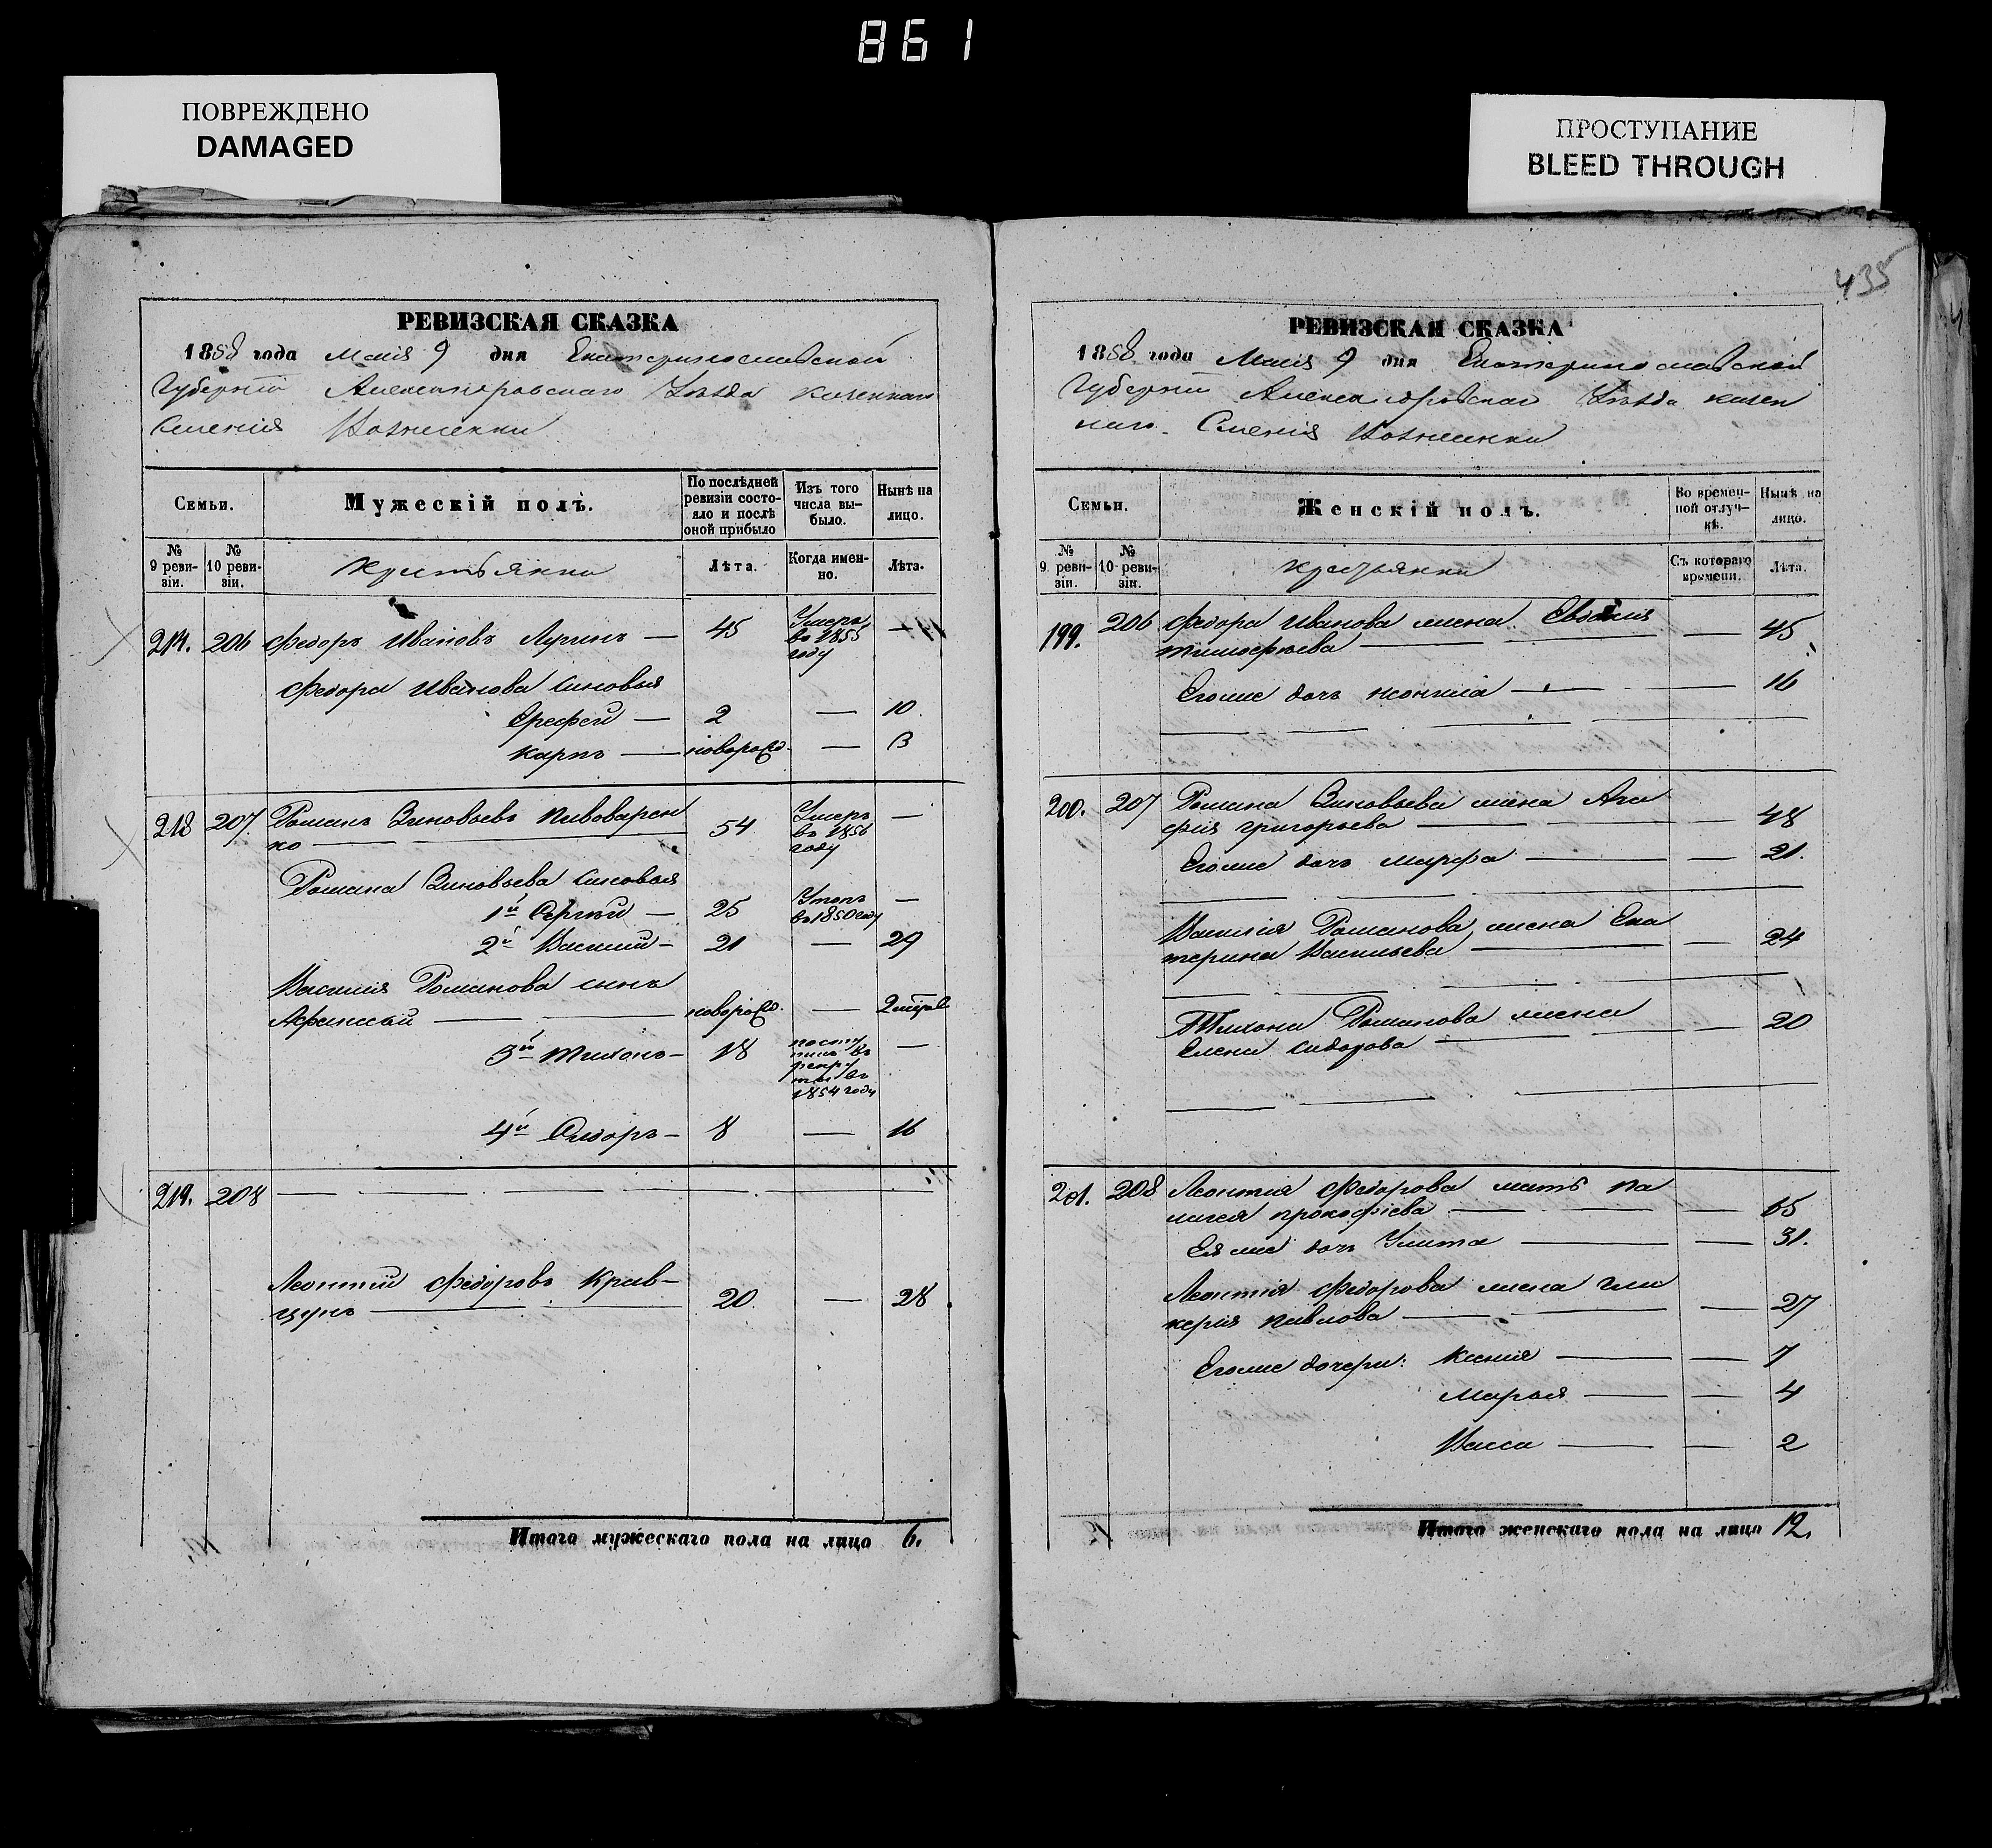 861
ПОВРЕЖДЕНО
DAMAGED
ПРОСТУПАНИЕ
BLEED THROUGH
РЕВИЗСКАЯ СКАЗКА
1858 года Маія 9 дня Екатеринославской
Губерніи Александровскаго Уѣзда казеннаго
Селенія Вознесенки
Семьи.
Мужескій полъ.
По послѣдней ревизіи состояло и послѣ оной прибыло
Изъ того числа выбыло.
Нынѣ на лицо.
№ 9 ревизіи.
№ 10 ревизіи.
Крестьяни
Лѣта.
Когда именно.
Лѣта.
217. 206 Федоръ Ивановъ Лучинъ — 45 Умеръ въ 1855 году —
Федора Иванова сыновья
Ерефей — 2 — 10
Карпъ — новорожд. — 3
218 207. Романъ Зиновьевъ Пивоварен
ко — 54 Умеръ въ 1856 году —
Романа Зиновьева сыновья
1й Сергѣй — 25 Утопъ въ 1850 году —
2й Василий — 21 — 29
Василия Романова сынъ
Афанасий — новорожд. —
3й Тихонъ — 18 поступилъ въ рекруты въ 1854 году —
4й Сидоръ — 8 — 16
219. 208
Леонтий Федоровъ Крив-
цунъ — 20 — 28
Итого мужескаго пола на лицо 6.
435
РЕВИЗСКАЯ СКАЗКА
1858 года Маія 9 дня Екатеринославской
Губерніи Александровскаго Уѣзда казен
наго Селенія Вознесенки
Семьи.
Женскій полъ.
Во временной отлучкѣ.
Нынѣ на лицо.
№ 9 ревизіи.
№ 10 ревизіи.
Крестьянки
Съ котораго времени.
Лѣта.
199. 206 Федора Иванова жена
Тимофѣева — 45
Егоже дочь — 16
200. 207 Романа Зиновьева жена Ага
фия Григорьева — 48
Егоже дочь Марфа — 21.
Василія Романова жена Ека
терина Васильева — 24
Тихона Романова жена
Елена Сидорова — 20
201. 208 Леонтия Федорова мать Пе
лагея Прокофіева — 65
Ея же дочь Улита — 31.
Леонтія Федорова жена Гли
керия Павлова — 27
Егоже дочери: Ксения — 7
Марья — 4
Васса — 2
Итого женскаго пола на лицо 12.